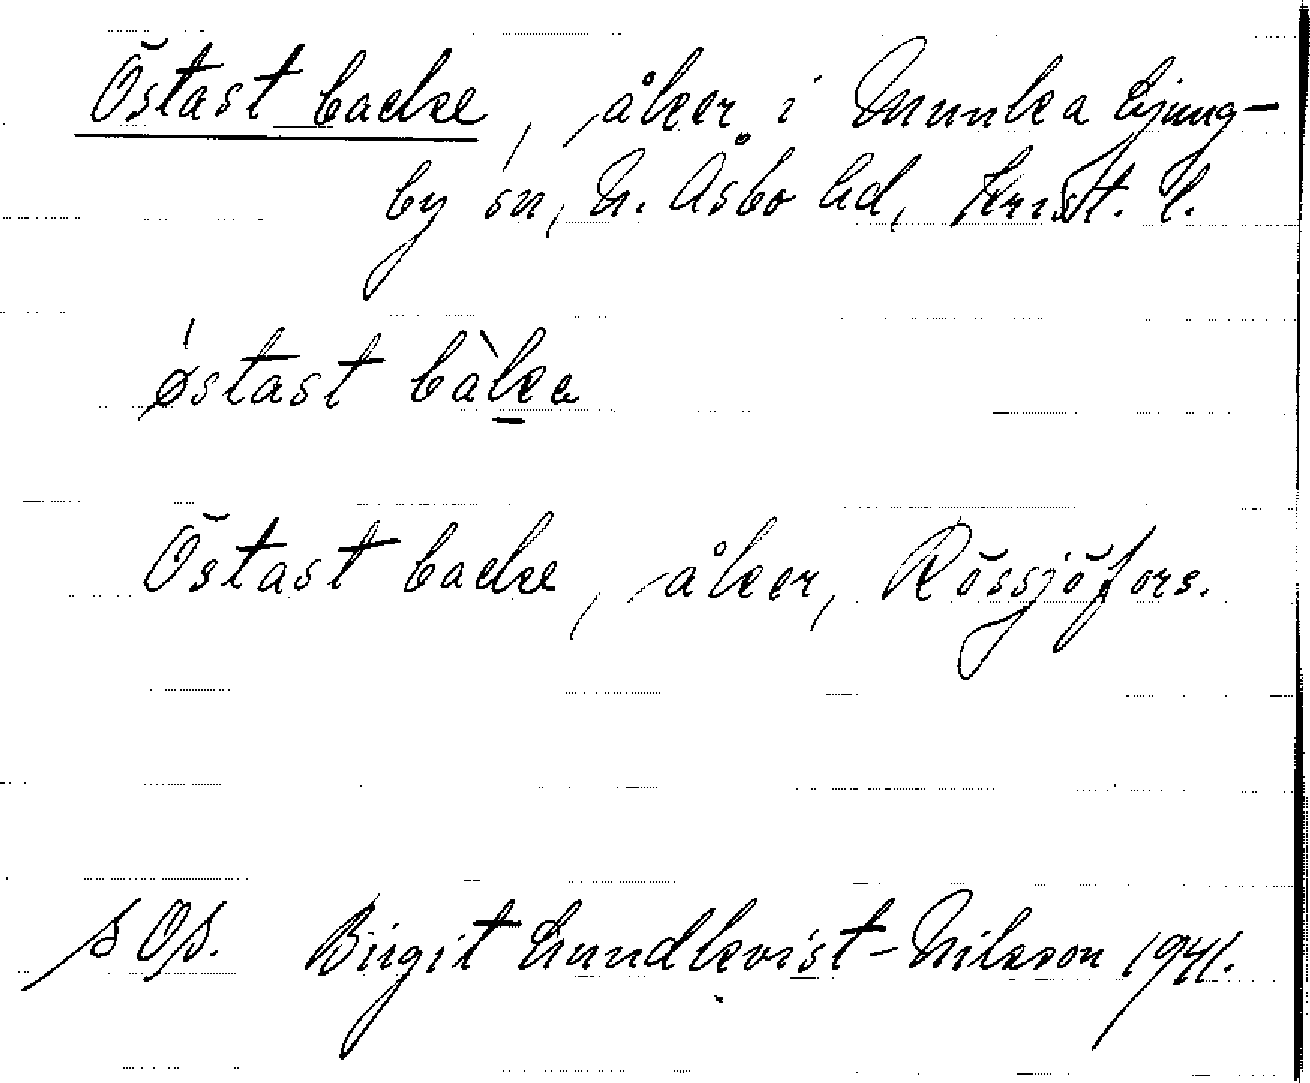 Östast backe, åker i Munka Ljung-
by sn, N. Åsbo hd, Krist. l.
østast bàka
Östast backe, åker, Rössjöfors.
Birgit Lundkvist-Nilsson 1941.